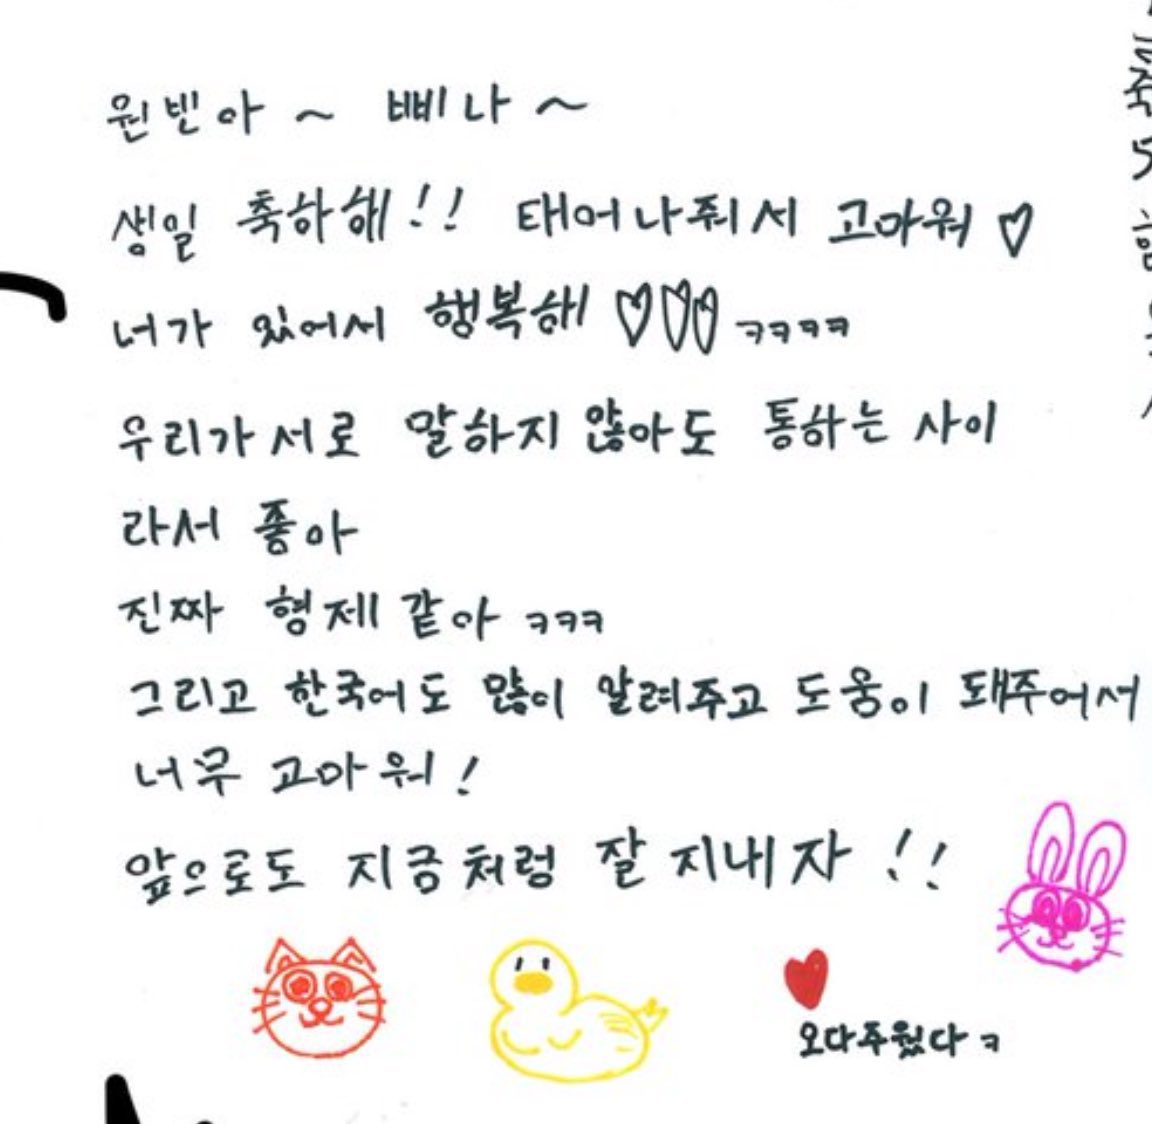 원빈아 ~ 삐나 ~
생일 축하해!! 태어나줘서 고마워 ♡
너가 있어서 행복해 ♡♡♡ ㅋㅋㅋㅋ
우리가 서로 말하지 않아도 통하는 사이
라서 좋아
진짜 형제 같아 ㅋㅋㅋ
그리고 한국어도 많이 알려주고 도움이 돼주어서
너무 고마워!
앞으로도 지금처럼 잘 지내자!!
오다주웠다 ㅋ